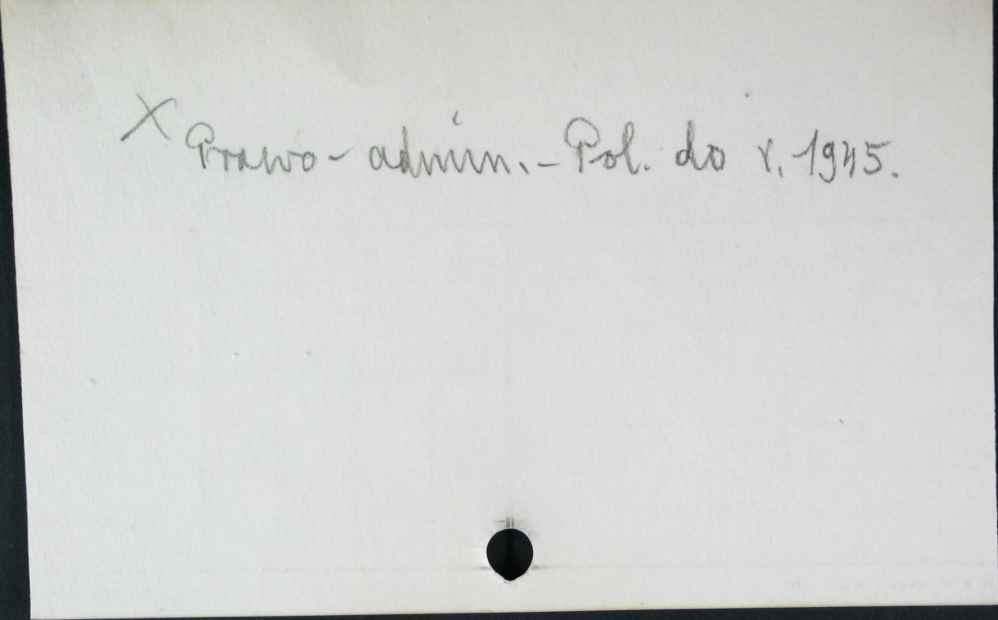 X Prawo - admin. - Pol. do r. 1945.